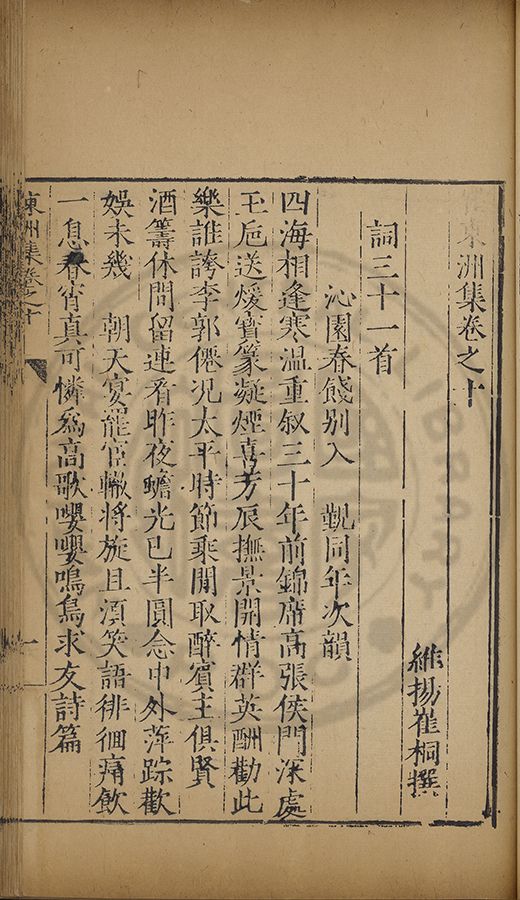 東洲集卷之十
維揚崔桐撰
詞三十一首
沁園春餞别入 觐同年次韻
四海相逢寒温重叙三十年前錦席高張侯門深處
玉巵送煖寳篆凝煙喜芳辰撫景開情群英酬勸此
樂誰誇李郭僊况太平時節乘閒取醉賓主俱賢
酒籌休問留連看昨夜蟾光已半圓念中外萍踪歡
娛未幾 朝天宴罷官轍將旋且須笑語徘徊痛飲
一息春宵真可憐爲高歌嚶嚶鳴鳥求友詩篇
東洲集卷之十
一